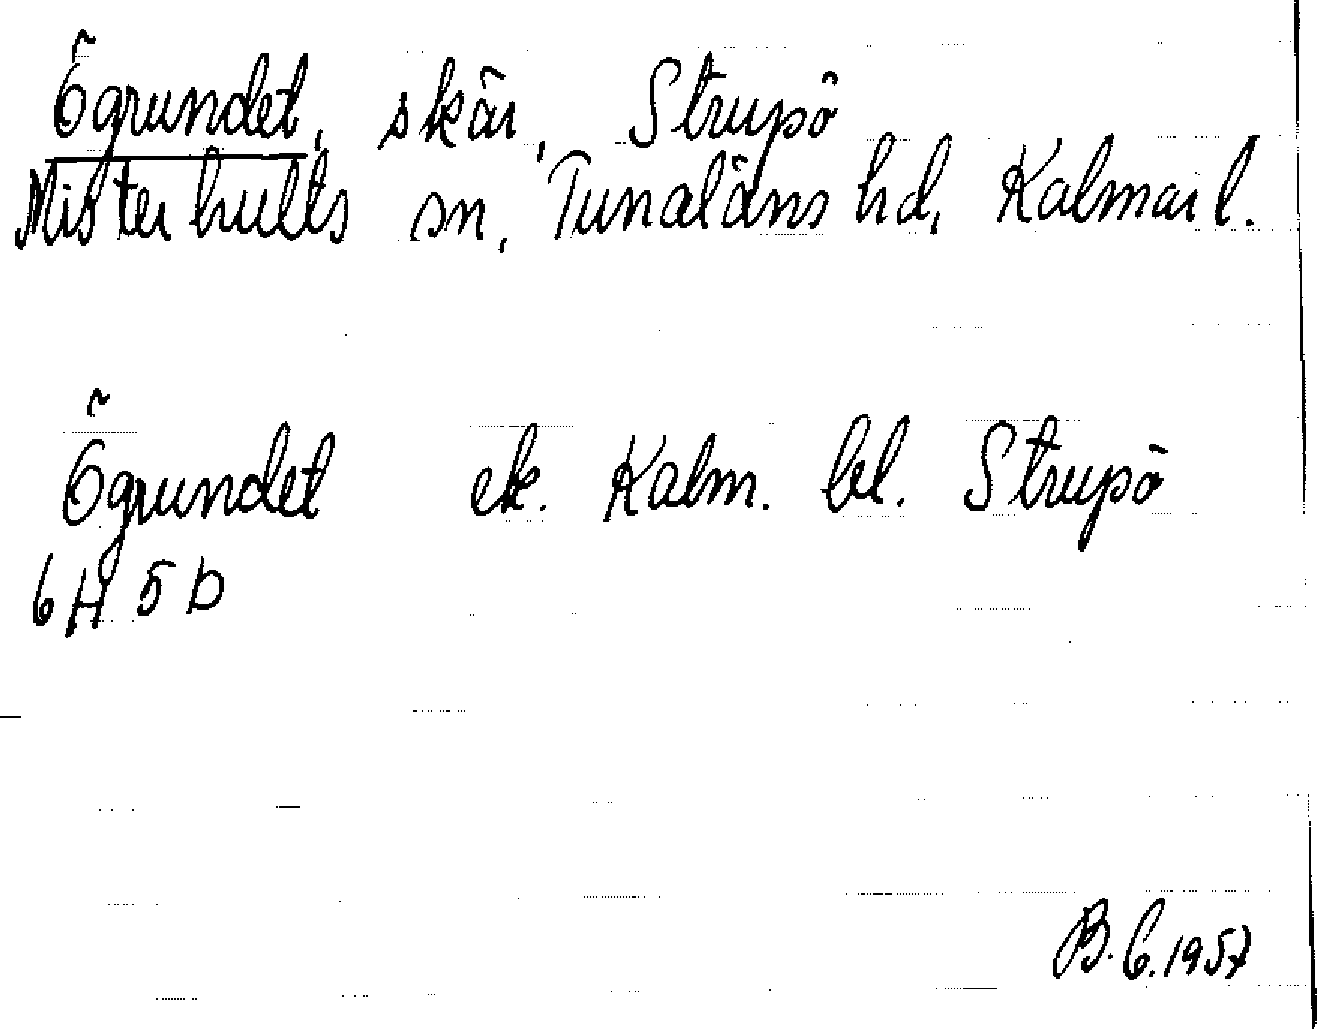 Ögrundet, skär, Strupö
Misterhults sn, Tunaläns hd, Kalmar l.
Ögrundet ek. Kalm. bl. Strupö
6H 5D
B.G.1957